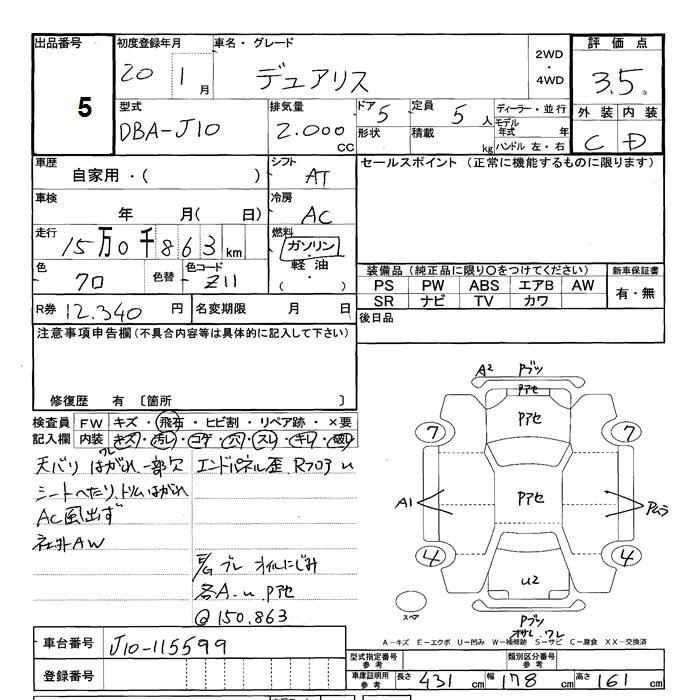 出品番号 初度登録年月 車名・グレード 2WD・4WD 評価点
5 20 1月 デュアリス 3.5
型式 排気量 ドア 5 定員 5人 ディーラー・並行 外装 内装
DBA-J10 2.000CC 形状 積載 kg モデル年式 年 C D
ハンドル 左・右
車歴 シフト セールスポイント (正常に機能するものに限ります)
自家用・( ) AT
車検 冷房
年 月( 日) AC
走行 燃料
15万0千863km ガソリン・軽油・( )
色 色替 色コード
クロ Z11
装備品 (純正品に限り〇をつけてください) 新車保証書
PS PW ABS エアB AW 有・無
SR ナビ TV カワ
R券 12.340円 名変期限 月 日 後日品
注意事項申告欄(不具合内容等は具体的に記入して下さい)
修復歴 有 〔箇所 〕
検査員記入欄 FW キズ・飛石・ヒビ割・リペア跡・×要
内装 キズ・汚レ・コゲ・穴・スレ・キレ・破レ
天バリ はがれ 一部欠 ワレ エンドパネル歪
シートへたり、トリムはがれ
AC風出ず
社外AW
ブレ オイルにじみ
各A.u.Pアセ
@150.863
A2 Pブツ
Pアセ
Pアセ
7 7
A1 Pアセ Pムラ
4 4
U2
スペア
Pブツ
ワレ
A-キズ E-エクボ U-凹み W-補修跡 S-サビ C-腐食 XX-交換済
車台番号 J10-115599
登録番号
型式指定番号 参考 類別区分番号 参考
車庫証明用 参考 長さ 431cm 幅 178cm 高さ 161cm